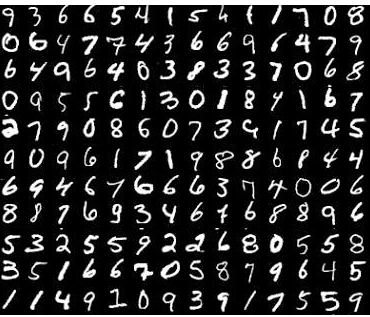 9 3 6 6 5 4 1 5 6 1 1 7 0 8
0 6 4 7 7 4 3 6 6 9 6 4 7 9
6 4 9 6 4 0 3 8 3 3 7 0 6 8
0 9 5 5 6 1 3 0 1 8 4 1 6 7
2 7 9 0 8 6 0 7 3 9 1 7 4 5
9 0 9 6 1 7 1 9 8 8 6 8 4 4
6 9 4 6 7 6 6 6 3 7 4 0 0 6
8 8 7 6 9 3 4 6 7 6 8 8 9 6
5 3 2 5 5 9 2 2 6 8 0 5 5 8
3 5 1 6 6 7 0 5 8 7 9 6 4 5
1 1 4 9 1 0 9 3 9 1 7 5 5 9